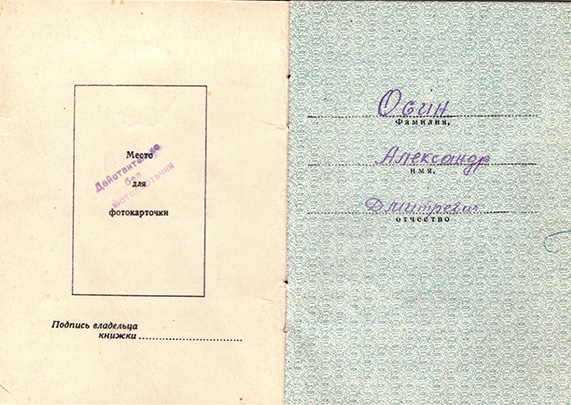 Место
для
фотокарточки
Действительно
без
фотокарточки
Подпись владельца
книжки
Осин
Фамилия,
Александр
имя,
Дмитревич
отчество